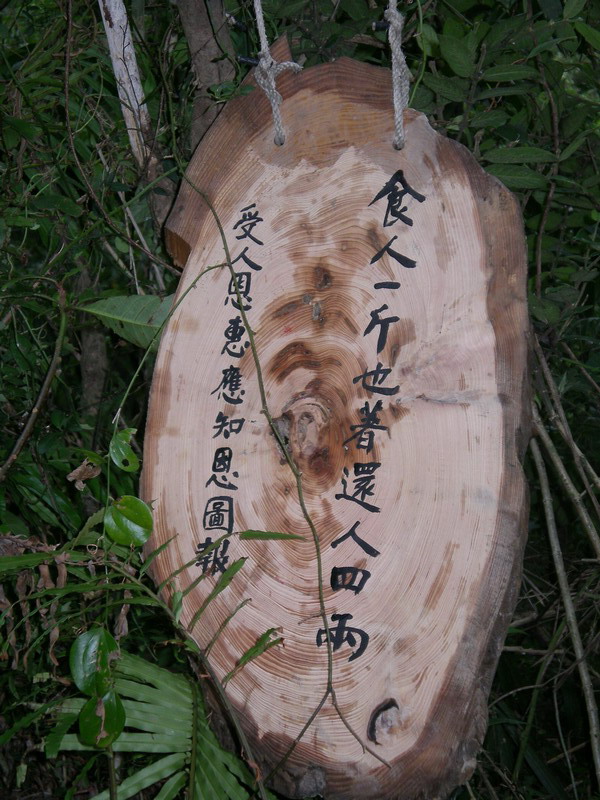 食人一斤也著還人四兩
受人恩惠應知恩圖報